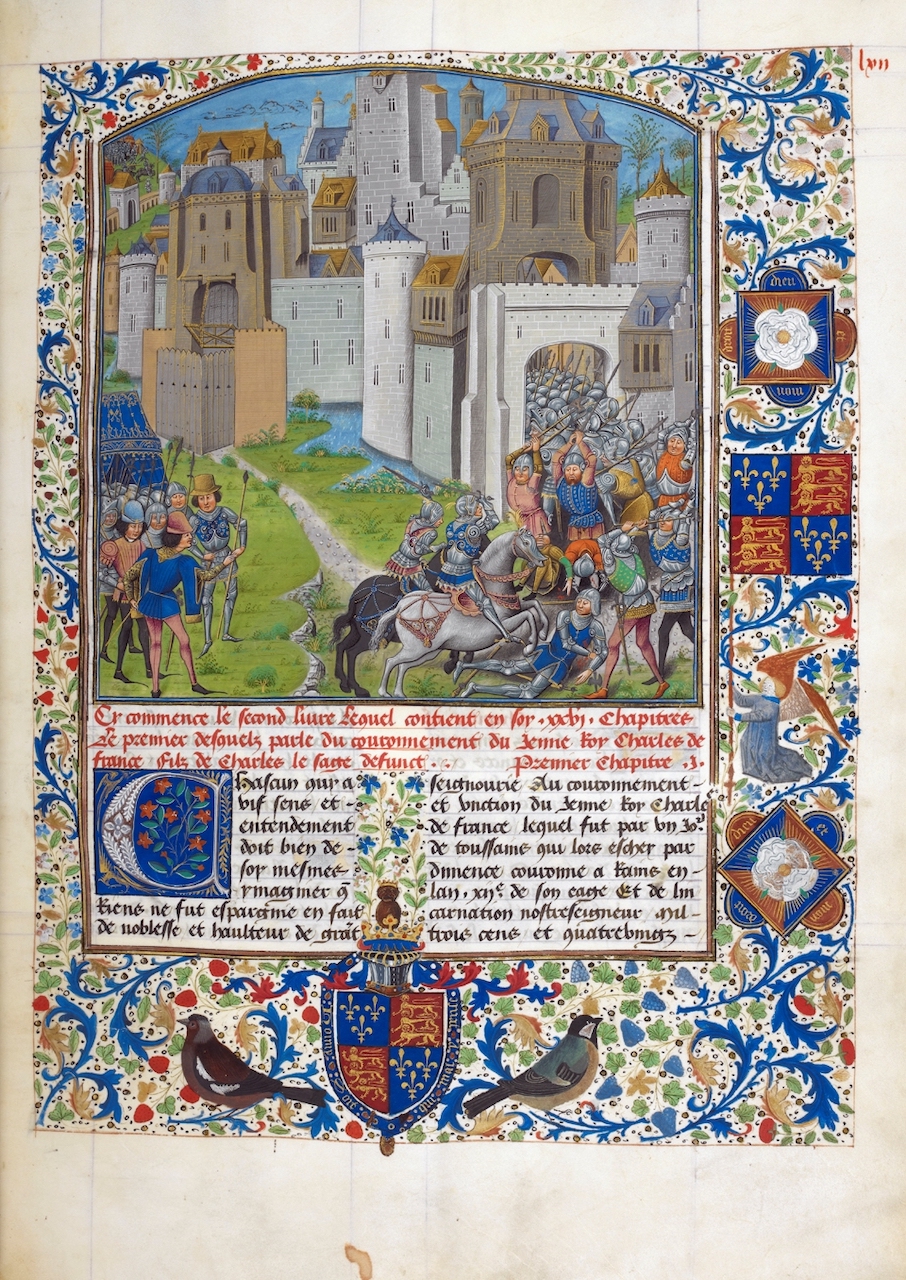 lxii
Cy commence le second livre Lequel contient en soy .xxvi. Chapitres
Le premier desquelz parle du couronnement du Jenne Roy Charles de
france filz de Charles le saige defunct . Premier Chapitre .I.
Chascun qui a
vif sens et
entendement
doit bien de
soy mesmes
ymaginer q̃
Riens ne fut espargnie en fait
de noblesse et haulteur de grãt
seignourie Au couronnement
et unction du Jenne Roy Charles
de france lequel fut par vng Jo.ʳ
de toussains qui lors eschey par
dimence couronne a Rains en
lan .xiiᵉ. de son eage Et de lin
carnation nostreseigneur Mil
trois cens et quatrevingz
dieu
et
mon
droit
dieu
et
mon
droit
Hony soit qui mal y pense